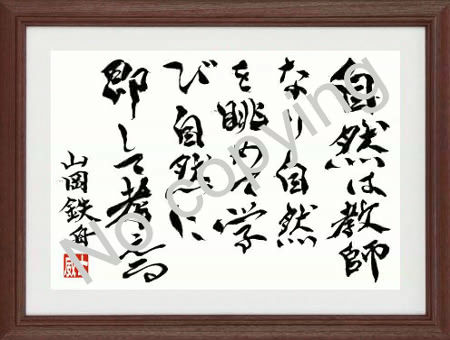 自然は教師
なり自然
を眺めて学
び自然に
即して考える
山岡鉄舟
No copying